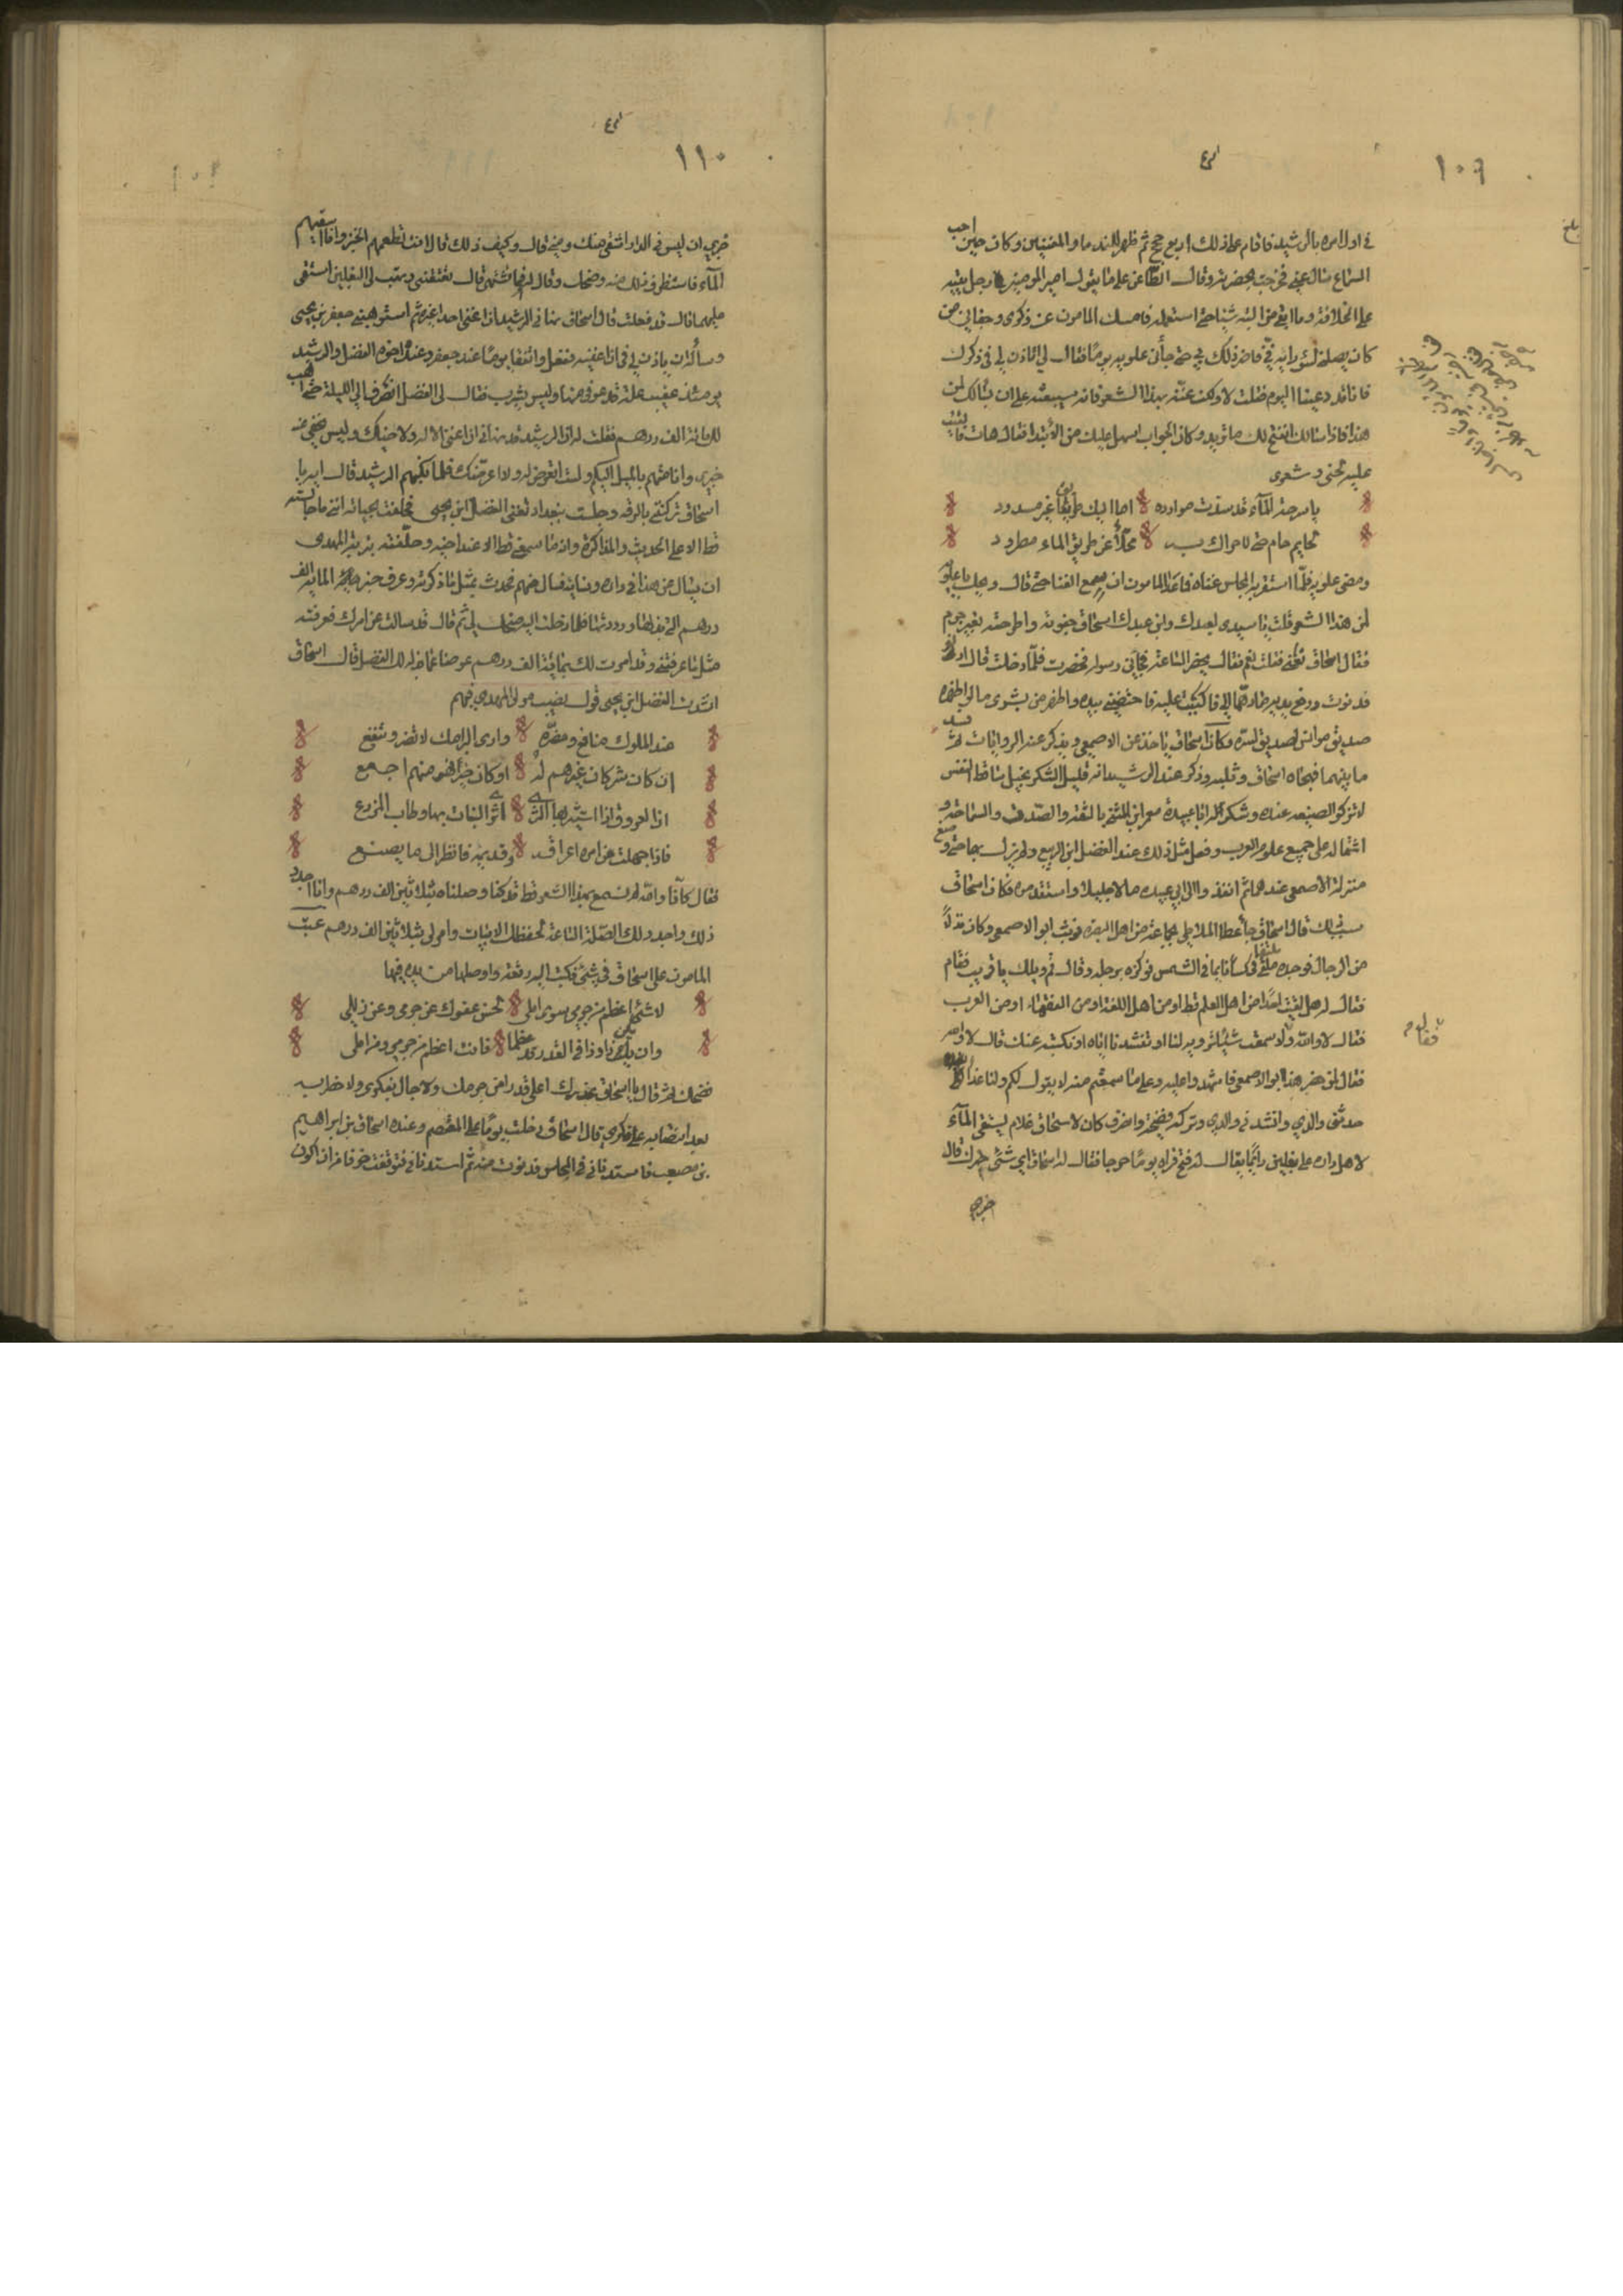 ١٠٩
في اول امره بالرشيد فاقام على ذلك اربع حجج ثم ظهر للندما والمغنيين وكان حين احب
السماع سال عني فخرجت بحضرته وقال الطاعن علي ما يقول امير المومنين في رجل يتيه
على الخلافة وما ابقى من التيه شيئا حتى استعمله فامسك المامون عن ذكري وجفاني من
كان يصلني لسو رايه في فاضر ذلك بي حتى جأني علويه يوما فقال لي اتاذن لي في ذكرك
فانا قد دعينا اليوم فقلت لا ولكن غنه بهذا الشعر فانه سيبعثه على ان يسالك لمن
هذا فاذا سالك انفتح لك ما تريد وكان الجواب اسهل عليك من الابتدا فقال هات فالقيت
عليه لحني في شعري
يا سرحة المآء قد سدت موارده اما اليك طريق غير مسدود
لحايم حام حتى لا حراك به محلأ عن طريق الماء مطرود
ومضى علويه فلما استقر به المجلس غناه فما عدا المامون ان سمع الغنا حتى قال ويلك يا علويه
لمن هذا الشعر قلت يا سيدي لعبدك وابن عبدك اسحاق جفوته واطرحته بغير جرم
فقال اسحاق تعني فقلت نعم فقال يحضر الساعة فجاءني رسوله فحضرت فلما دخلت قال ادن
فدنوت ورفع يديه مادهما الي فاكببت عليه فاحتضنني بيده واظهر من بشري ما لو اظهره
صديق موانس لصديق لسره وكان اسحاق ياخذ عن الاصمعي ويذكر عنه الروايات ثم فسد
ما بينهما فهجاه اسحاق وثلبه وذكر عند الرشيد انه قليل الشكر بخيل ساقط النفس
لا تزكو الصنيعة عنده وشكر له ابا عبيدة معمر ابن المثنى بالثقة والصدق والسماحة و
اشتماله على جميع علوم العرب وفعل مثل ذلك عند الفضل ابن الربيع ولم يزل بهما حتى وضع
منزلة الاصمعي عندهما ثم انفذوا الى ابي عبيده مالا جليلا واستقدموه فكان اسحاق
سبب ذلك قال اسحاق جأ عطا الملك الى جماعة من اهل البصرة قريب ابو الاصمعي وكان نذلا
من الرجال فوجده ملتفا في كسا نايما في الشمس فركزه برجله وقال قم ويلك يا قريب فقام
فقال له هل لقيت احدا من اهل العلم قط او من اهل اللغة او من الفقهاء او من العرب
فقال لا والله ولا سمعت شيئا ترويه لنا او تنشدنا اياه او نكتبه عنك قال لا والله
فقال لمن حضر هذا ابو الاصمعي فاشهدوا عليه وعلى ما سمعتم منه لا يقول لكم ولنا غدا
حدثني والدي وانشدني والدي وتركه وفضحه وانصرف كان لاسحاق غلام يسقي المآء
لاهل داره على بغلين دايما يقال له فتح فراه يوما موجا فقال له اسحاق اي شي خبرك قال
خبري
فقال
١١٠
خبري ان ليس في الدار اشقى منك ومني قال وكيف ذلك قال لانك تطعمهم الخبز وانا اسقيهم
المآء فاستظرف ذلك منه وضحك وقال له فما تشتهي قال تعتقني وتهب لي البغلين استقي
عليهما قال قد فعلت قال اسحاق نهاني الرشيد ان اغني احدا غيره ثم استوهبني جعفر بن يحيى
وسأله ان ياذن لي في ان اغنيه ففعل واتفقنا يوما عند جعفر وعنده اخوه الفضل والرشيد
يومئذ عقيب علة قد عوفي منها وليس يشرب فقال لي الفضل انصرف الي الليلة حتى اهب
لك مائة الف درهم فقلت له ان الرشيد قد نهاني ان اغني الا له ولاخيك وليس يخفى عنه
خبري وانا متهم بالميل اليكم ولست اتعرض له ولا اعرضك فلما نكبهم الرشيد قال ايه يا
اسحاق تركتني بالرقة وجلست ببغداد تغني الفضل ابن يحيى فحلفت بحياته انني ما جالسته
قط الا على الحديث والمذاكرة وانه ما سمعني قط الا عند اخيه وحلفته بتربة المهدي
ان يسال عن هذا في داره ونسايه فسال عنهم فحدث بمثل ما ذكرته وعرف خبر المائة الف
درهم التي بذلها ورددتها فلما دخلت اليه ضحك لي ثم قال قد سالت عن امرك فعرفته
مثل ما عرفتني وقد امرت لك بمائة الف درهم عوضا عما بذله لك الفضل قال اسحاق
انشدت الفضل ابن يحيى قول نصيب مولى المهدي فيهم
عند الملوك منافع ومضرة وارى البرامك لا تضر وتنفع
ان كان شر كان غيرهم له او كان خير فهو منهم اجمع
ان العروق اذا استسر بها الثرى اثر النبات بها وطاب المزرع
فاذا جهلت من امرء اعراقه وقديمه فانظر الى ما يصنع
فقال كأنا والله لم نسمع بهذا الشعر قط قد كنا وصلناه بثلاثين الف درهم وانا اجدد
ذلك واجدد لك الصلة الساعة لحفظك الابيات وامر لي بثلاثين الف درهم عتب
المامون على اسحاق في شيء فكتب اليه رقعة واوصلها من يده فيها
لا شيء اعظم من جرمي سوى املي لحسن عفوك عن جرمي وعن زللي
وان يكن ذا وذا في القدر قد عظما فانت اعظم من جرمي ومن املي
فضحك ثم قال يا اسحاق عذرك اعلى قدرا من جرمك ولا جال بفكري ولا خطر به
بعد انقضايه على ذكري قال اسحاق دخلت يوما على المعتصم وعنده اسحاق بن ابراهيم
بن مصعب فاستدناني في المجلس فدنوت منه ثم استدناني فتوقفت خوفا من ان اكون